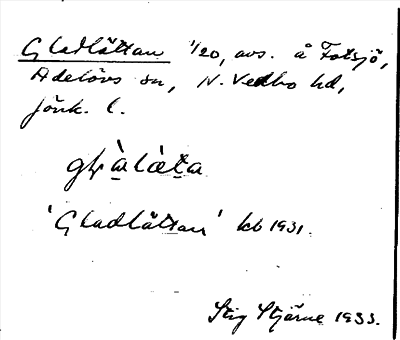 Gladlättan 1/20, avs. å Fotsjö,
Adelövs sn, N. Vedbo hd,
Jönk. l.
glàlæta
'Gladlättan' kb 1931.
Stig Stjärne 1933.